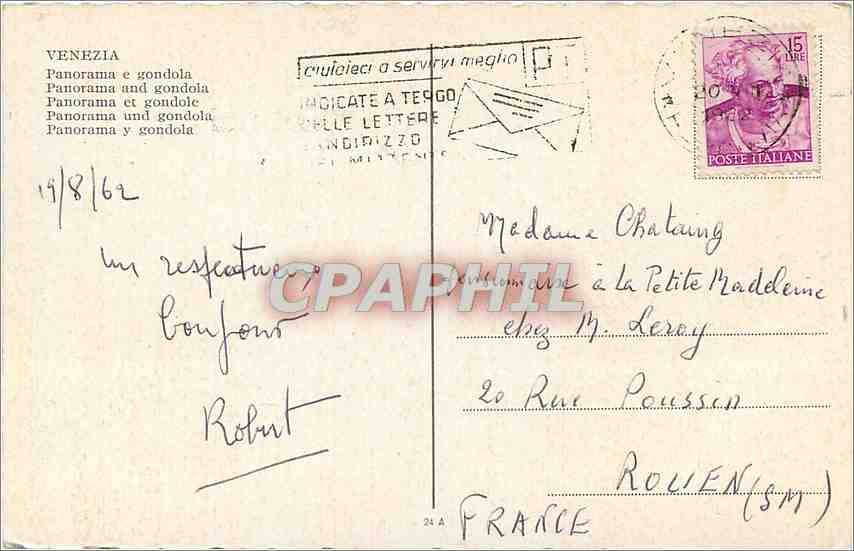 VENEZIA
Panorama e gondola
Panorama and gondola
Panorama et gondole
Panorama und gondola
Panorama y gondola
aiutateci a servirvi meglio
INDICATE A TERGO
DELLE LETTERE
L'INDIRIZZO
DEL MITTENTE
15
LIRE
POSTE ITALIANE
1962
19/8/62
un respectueux
bonjour
Robert
Madame Chataing
pensionnaire à la Petite Madeleine
chez M. Leroy
20 Rue Poussin
ROUEN (SM)
FRANCE
24 A
CPAPHIL